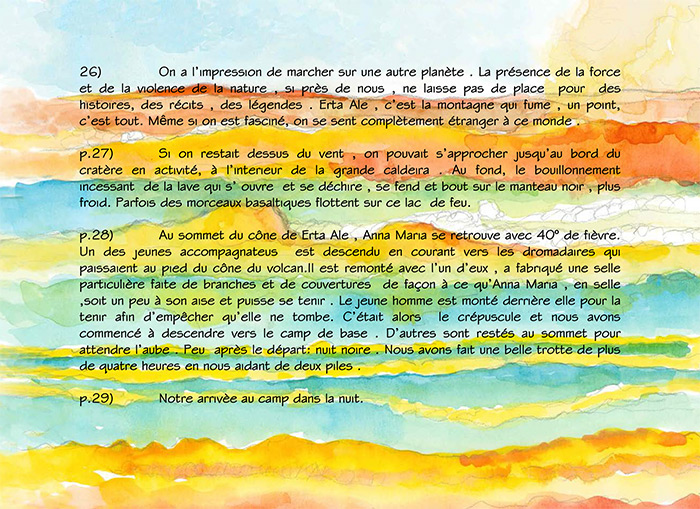 26) On a l'impression de marcher sur une autre planète . La présence de la force
et de la violence de la nature , si près de nous , ne laisse pas de place pour des
histoires, des récits , des légendes . Erta Ale , c'est la montagne qui fume , un point,
c'est tout. Même si on est fasciné, on se sent complètement étranger à ce monde .
p.27) Si on restait dessus du vent , on pouvait s'approcher jusqu'au bord du
cratère en activité, à l'interieur de la grande caldeira . Au fond, le bouillonnement
incessant de la lave qui s' ouvre et se déchire , se fend et bout sur le manteau noir , plus
froid. Parfois des morceaux basaltiques flottent sur ce lac de feu.
p.28) Au sommet du cône de Erta Ale , Anna Maria se retrouve avec 40º de fièvre.
Un des jeunes accompagnateus est descendu en courant vers les dromadaires qui
paissaient au pied du cône du volcan.Il est remonté avec l'un d'eux , a fabriqué une selle
particulière faite de branches et de couvertures de façon à ce qu'Anna Maria , en selle
,soit un peu à son aise et puisse se tenir . Le jeune homme est monté derrière elle pour la
tenir afin d'empêcher qu'elle ne tombe. C'était alors le crépuscule et nous avons
commencé à descendre vers le camp de base . D'autres sont restés au sommet pour
attendre l'aube . Peu après le départ: nuit noire . Nous avons fait une belle trotte de plus
de quatre heures en nous aidant de deux piles .
p.29) Notre arrivèe au camp dans la nuit.